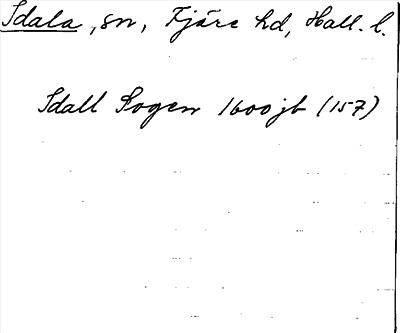 Idala, sn, Fjäre hd, Hall. l.
Idall Sogen 1600 jb (157)